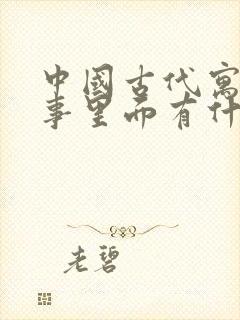 中國古代寓
事里面有什
老碧